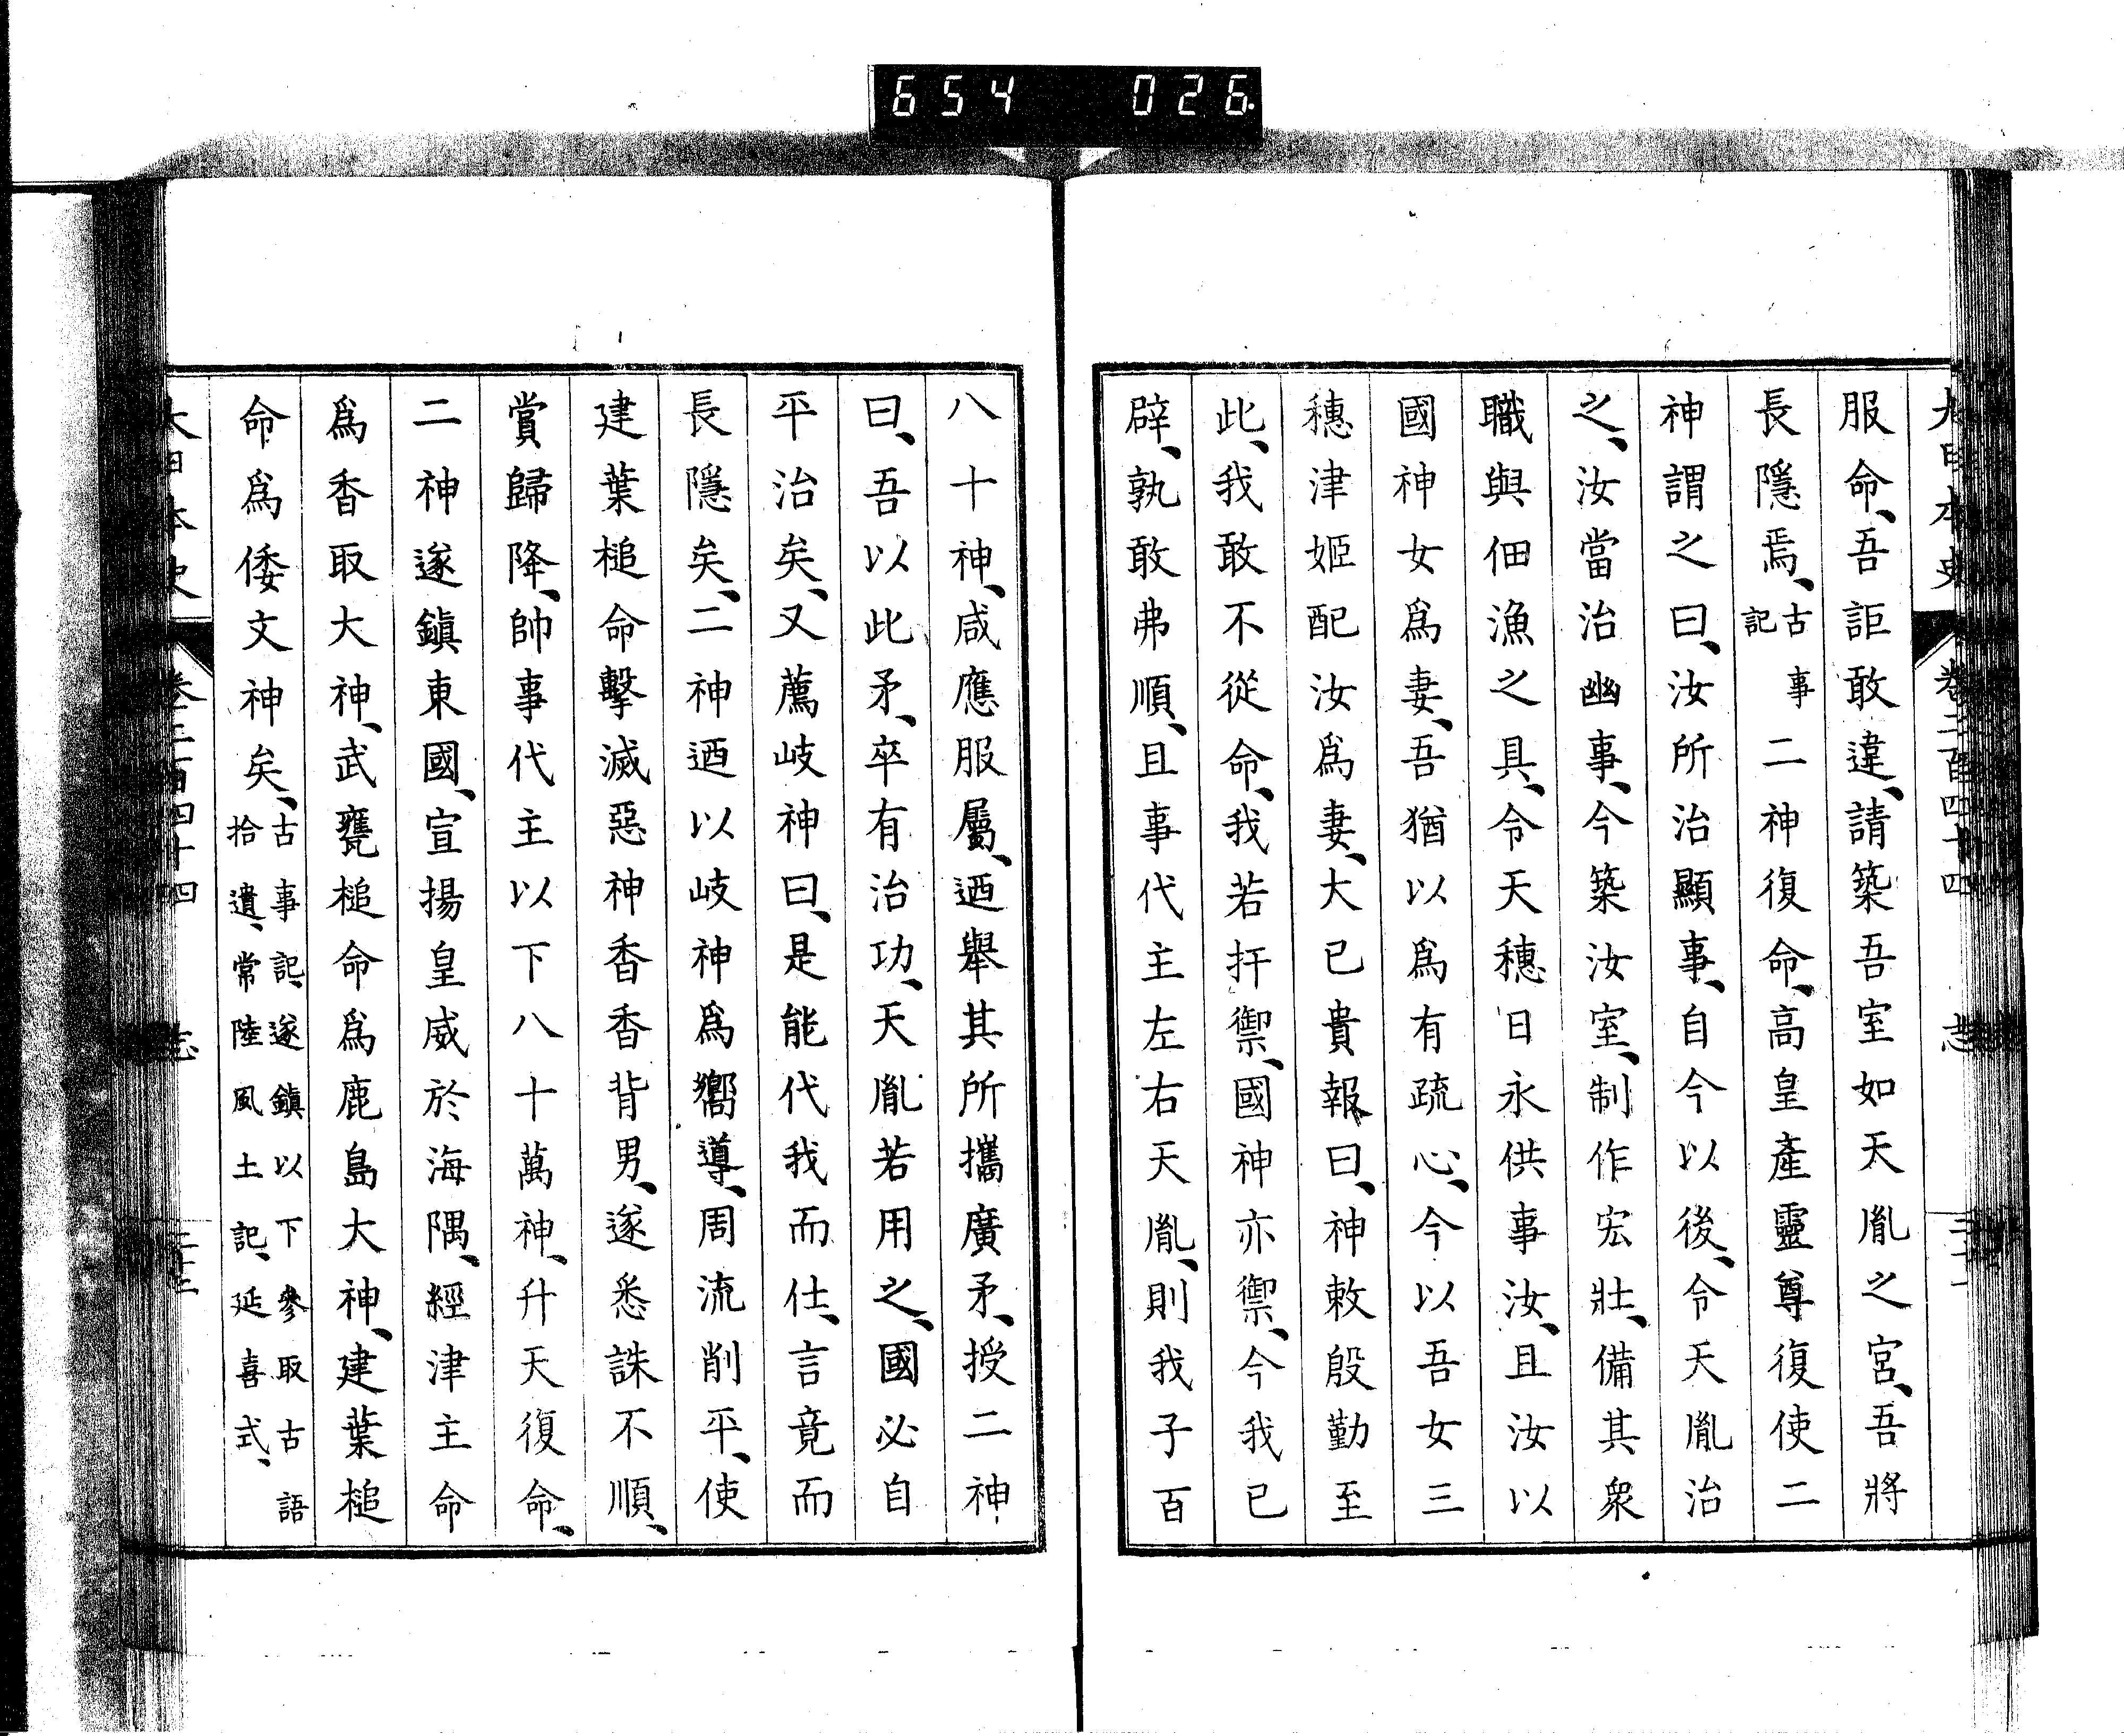 654 026
大日本史 卷二百四十四 志
服命、吾詎敢違、請築吾室如天胤之宮、吾將
長隱焉、古事記二神復命、高皇產靈尊復使二
神謂之曰、汝所治顯事、自今以後、令天胤治
之、汝當治幽事、今築汝室、制作宏壯、備其衆
職與佃漁之具、令天穗日永供事汝、且汝以
國神女爲妻、吾猶以爲有疏心、今以吾女三
穗津姬配汝爲妻、大已貴報曰、神敕殷勤至
此、我敢不從命、我若扞禦、國神亦禦、今我已
辟、孰敢弗順、且事代主左右天胤、則我子百
八十神、咸應服屬、迺舉其所攜廣矛、授二神
曰、吾以此矛、卒有治功、天胤若用之、國必自
平治矣、又薦岐神曰、是能代我而仕、言竟而
長隱矣、二神迺以岐神爲嚮導、周流削平、使
建葉槌命擊滅惡神香香背男、遂悉誅不順、
賞歸降、帥事代主以下八十萬神、升天復命、
二神遂鎭東國、宣揚皇威於海隅、經津主命
爲香取大神、武甕槌命爲鹿島大神、建葉槌
命爲倭文神矣、古事記、遂鎭以下參取古語拾遺、常陸風土記、延喜式、
大日本史 卷二百四十四 志